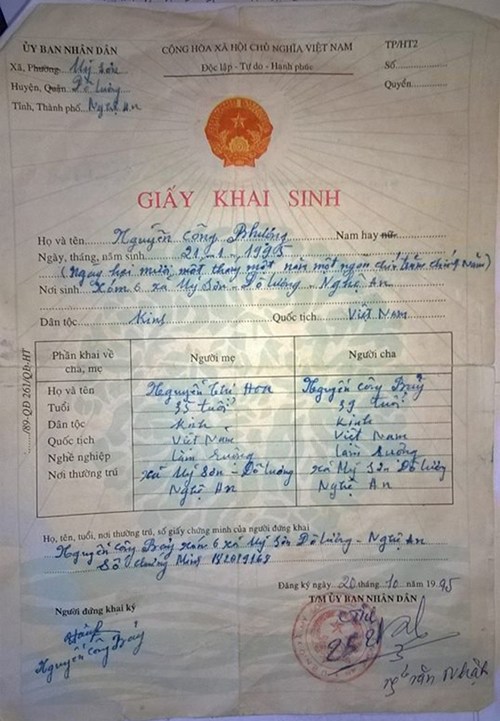 ỦY BAN NHÂN DÂN
CỘNG HÒA XÃ HỘI CHỦ NGHĨA VIỆT NAM
TP/HT2
Xã, Phường Mỹ Sơn
Độc lập - Tự do - Hạnh phúc
Số
Huyện, Quận Đô Lương
Quyển
Tỉnh, Thành phố Nghệ An
GIẤY KHAI SINH
Họ và tên Nguyễn Công Phượng Nam hay nữ
Ngày, tháng, năm sinh 21 - 1 - 1995
(Ngày hai mươi một tháng một năm một ngàn chín trăm chín năm)
Nơi sinh Xóm 6 xã Mỹ Sơn - Đô Lương - Nghệ An
Dân tộc Kinh Quốc tịch Việt Nam
Phần khai về cha, mẹ
Người mẹ
Người cha
Họ và tên Nguyễn Thị Hoa Nguyễn Công Bảy
Tuổi 35 tuổi 39 tuổi
Dân tộc Kinh Kinh
Quốc tịch Việt Nam Việt Nam
Nghề nghiệp Làm ruộng Làm ruộng
Nơi thường trú xã Mỹ Sơn - Đô Lương xã Mỹ Sơn Đô Lương
Nghệ An Nghệ An
/89-QĐ 261/QĐ-HT
Họ, tên, tuổi, nơi thường trú, số giấy chứng minh của người đứng khai
Nguyễn Công Bảy xóm 6 xã Mỹ Sơn Đô Lương - Nghệ An
Số chứng minh
Đăng ký ngày 20 tháng 10 năm 1995
Người đứng khai ký
T/M ỦY BAN NHÂN DÂN
Nguyễn Công Bảy